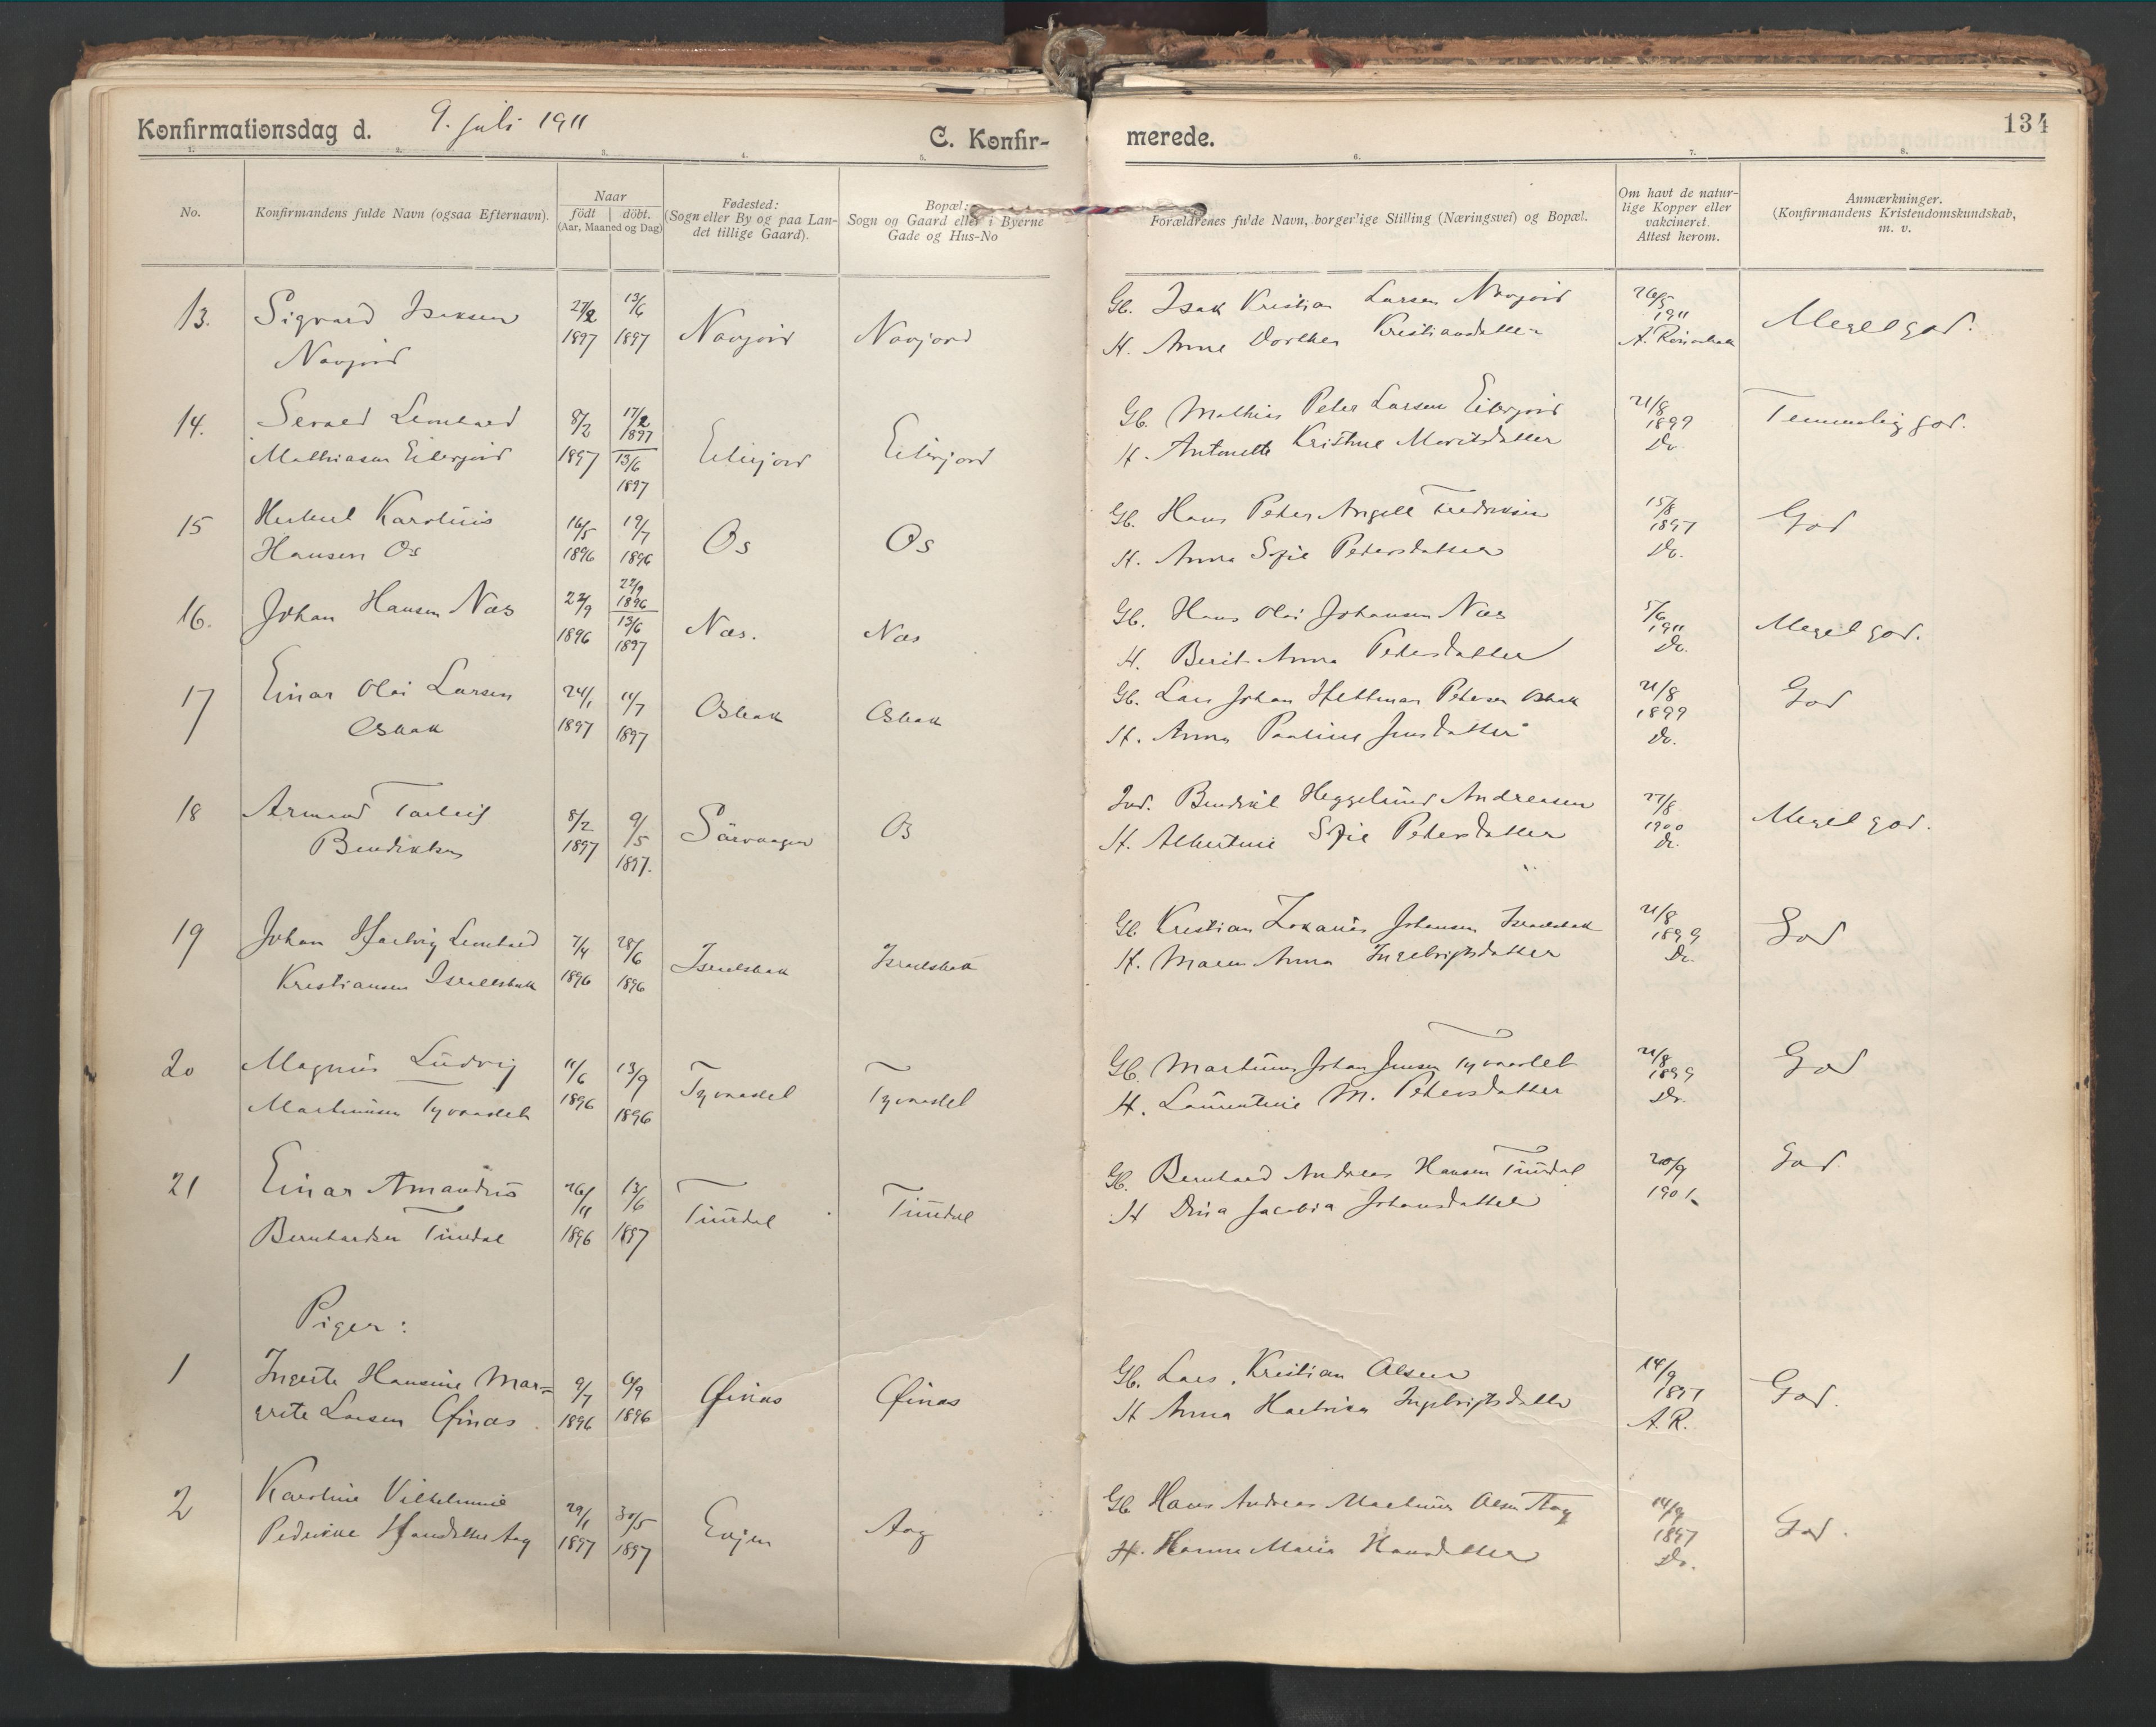 Konfirmationsdag d. 9. juli 1911
C. Konfir-
merede.
134
1. 2. 3. 4. 5. 6. 7. 8.
No.
Konfirmandens fulde Navn (ogsaa Efternavn).
Naar
födt | döbt.
(Aar, Maaned og Dag)
Fødested:
(Sogn eller By og paa Lan-
det tillige Gaard).
Bopæl:
Sogn og Gaard eller i Byerne
Gade og Hus-No
Forældrenes fulde Navn, borgerlige Stilling (Næringsvei) og Bopæl.
Om havt de natur-
lige Kopper eller
vakcineret.
Attest herom.
Anmærkninger.
(Konfirmandens Kristendomskundskab,
m. v.
13. Sigvard Isaksen
Navjord
27/2 1897
13/6 1897
Navjord
Navjord
Gb. Isak Kristian Larsen Navjord
H. Anne Dorthea Kristiansdatter
26/5 1911
Meget god.
14. Leonhard
Mathiasen Eiterjord
8/2 1897
17/2 1897
13/6 1897
Eiterjord
Eiterjord
Gb. Mathias Peter Larsen Eiterjord
H. Antonette Kristine Moritsdatter
21/8 1899
Do.
Temmelig god.
15 Karolius
Hansen Os
16/5 1896
19/7 1896
Os
Os
Gb. Hans Peter Angell Fredriksen
H. Anna Sofie Petersdatter
15/8 1897
Do.
God
16. Johan Hansen Næs
22/9 1896
22/9 1896
13/6 1897
Næs.
Næs
Gb. Hans Olai Johansen Næs
H. Berit Anna Petersdatter
5/6 1911
Do.
Meget god.
17 Einar Olai Larsen
Osbak
24/1 1897
11/7 1897
Osbak
Osbak
Gb. Lars Johan Petersen Osbak
H. Anna Pauline Jensdatter
21/8 1899
Do.
God
18 Armand Torleif
Bendiktsen
8/2 1897
9/5 1897.
Sörvaagen
Os
Ind. Bendikt Heggelund Andreasen
H. Albertine Sofie Petersdatter
27/8 1900
Do.
Meget god.
19 Johan Hartvig Leonhard
Kristiansen Israelsbak
7/4 1896
28/6 1896
Israelsbak
Israelsbak
Gb. Kristian Zakarias Johansen Israelsbak
H. Maren Anna Ingebrigtsdatter
21/8 1899
Do.
God
20 Magnus Ludvig
Martinusen Tyvaaslet
11/6 1896
13/9 1896
Tyvaaslet
Tyvaaslet
Gb. Martinus Johan Jensen Tyvaaslet
H. Laurentine M. Petersdatter
21/8 1899
Do.
God
21 Einar Amandus
Bernhardsen Tindal
26/11 1896
13/6 1897
Tindal
Tindal
Gb. Bernhard Andreas Hansen Tindal
H Dina Jacobia Johansdatter
20/9 1901.
God.
Piger:
1 Hansine Mar=
grete Larsen Ofinæs.
9/7 1896
6/9 1896
Ofinæs
Ofinæs
Gb. Lars Kristian Olsen
H Anna Hartvika Ingebrigtsdatter
14/9 1897
A.R.
God.
2 Karoline Vilhelmine
Pedrikke Hansdatter Aag
29/1 1897
30/5 1897
Evjen
Aag
Gb Hans Andreas Martinus Olsen Aag
H. Hanna Maria Hansdatter
14/9 1897
Do.
God.